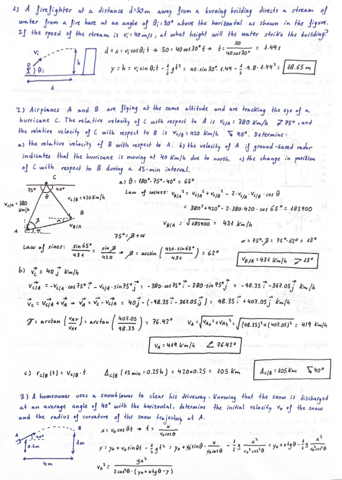 1) A firefighter at a distance d=50m away from a burning building directs a stream of
water from a fire hose at an angle of θi=30° above the horizontal as shown in the figure.
If the speed of the stream is vi=40m/s, at what height will the water strike the building?
d = x = vi cosθi t → 50 = 40 cos30° t → t = 50/40cos30° = 1.44s
y = h = vi sinθi t - 1/2 gt² = 40·sin30°·1.44 - 1/2·9.8·1.44² = 18.65 m
2) Airplanes A and B are flying at the same altitude and are tracking the eye of a
hurricane C. The relative velocity of C with respect to A is vC/A = 380 km/h 75°, and
the relative velocity of C with respect to B is vC/B = 420 km/h 40°. Determine:
a) the relative velocity of B with respect to A. b) the velocity of A if ground-based radar
indicates that the hurricane is moving at 40 km/h due to north. c) the change in position
of C with respect to B during a 15-min interval.
a) θ = 180°-75°-40° = 65°
Law of cosines: vB/A² = vC/A² + vC/B² - 2·vC/A·vC/B·cosθ
= 380² + 420² - 2·380·420·cos65° = 185900
vB/A = √185900 = 431 km/h
75° = β + α
Law of sines: sin65°/431 = sinβ/420 → β = arcsin(420·sin65°/431) = 62°
α = 75° - β = 75° - 62° = 13°
vB/A = 431 km/h 13°
b) vC = 40 j km/h
vC/A = -vC/A cos75° i - vC/A sin75° j = -380 cos75° i - 380·sin75° j = -98.35 i - 367.05 j km/h
vC = vC/A + vA → vA = vC - vC/A = 40 j - (-98.35 i - 367.05 j) = 98.35 i + 407.05 j km/h
= arctan(vAy/vAx) = arctan(407.05/98.35) = 76.42° vA = √(vAx² + vAy²) = √((98.35)² + (407.05)²) = 419 km/h
vA = 419 km/h 76.42°
c) rC/B(t) = vC/B t ΔC/B (15 min = 0.25h) = 420×0.25 = 105 km
ΔC/B = 105km 40°
3) A homeowner uses a snowblower to clear his driveway. Knowing that the snow is discharged
at an average angle of 40° with the horizontal, determine the initial velocity v0 of the snow
and the radius of curvature of the snow trajectory at A.
x = v0 cosθ t → t = x/v0 cosθ
y = y0 + v0 sinθ t - 1/2 gt² = y0 + v0 sinθ x/v0 cosθ - 1/2 g x²/v0² cos²θ = y0 + x tgθ - 1/2 g x²/v0² cos²θ
v0² = gx²/2cos²θ·(y0 + x tgθ - y)
4m